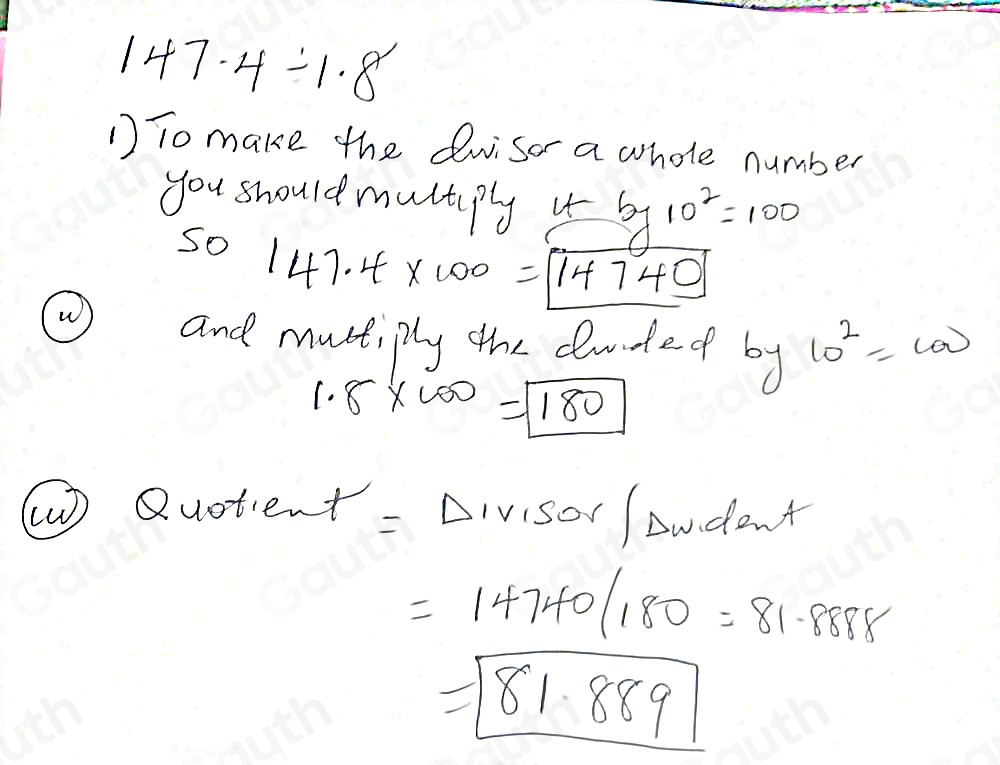 147.4 ÷ 1.8
1) To make the divisor a whole number
you should multiply it by 10² = 100
so 147.4 x 100 = 14740
(ii) and multiply the divided by 10² = 100
1.8 x 100 = 180
(iii) Quotient = Divisor / Divident
= 14740/180 = 81.8888
= 81.889